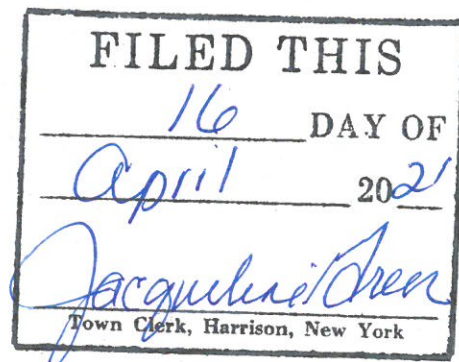 FILED THIS
16 DAY OF
April 2021
Jacqueline Greer
Town Clerk, Harrison, New York